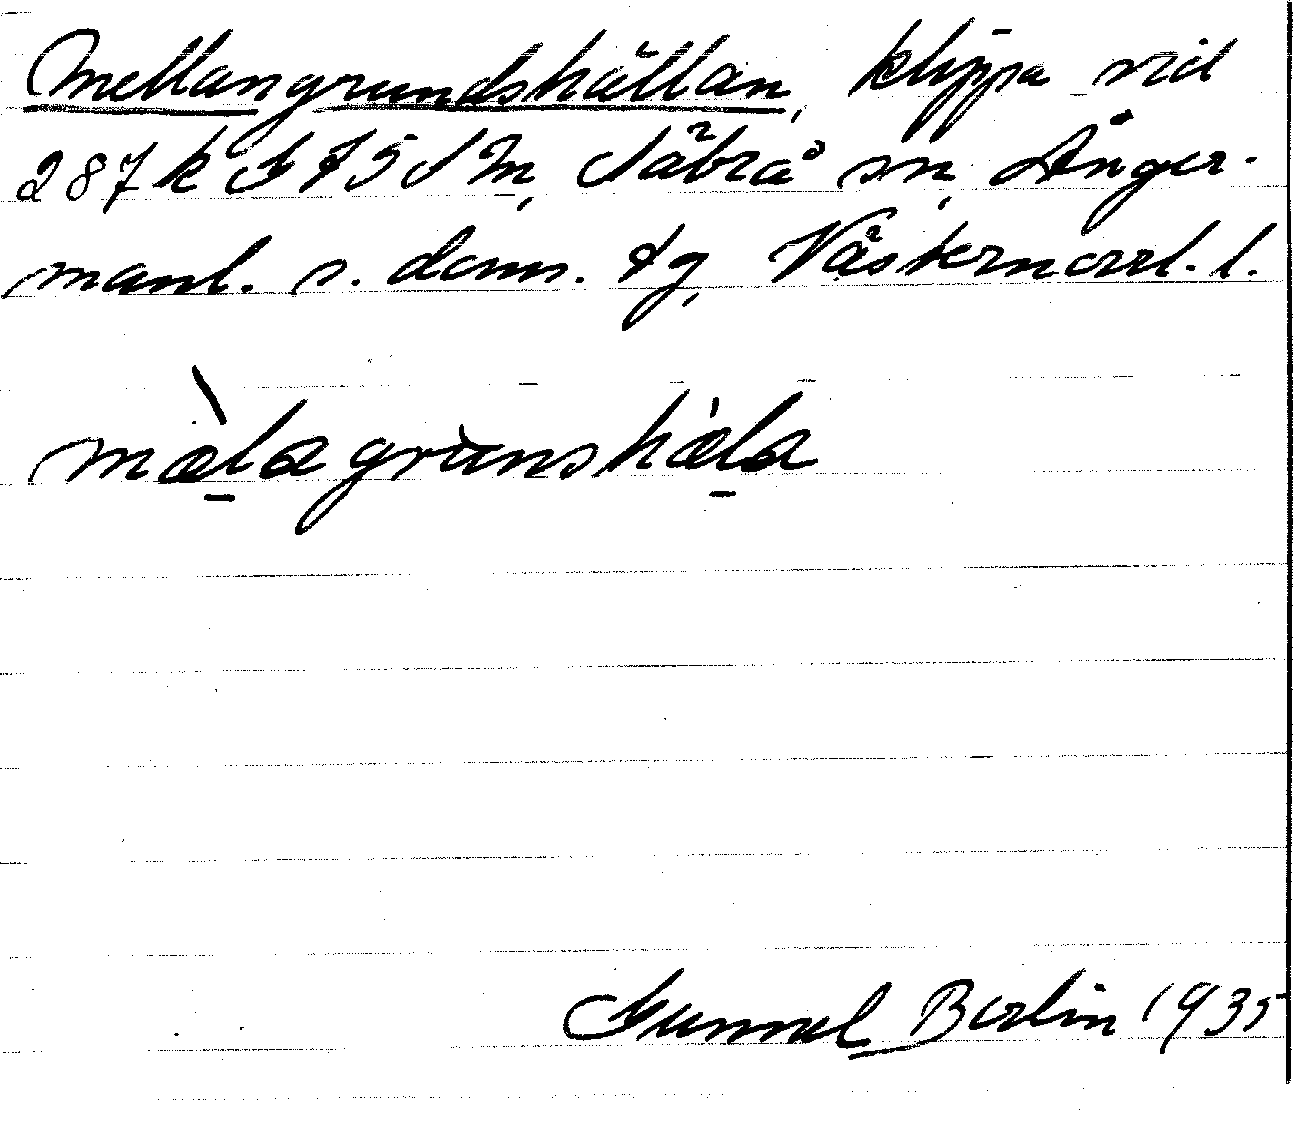 Mellangrundshällan, klippa vid
287 k S 75 S M, Säbrå sn, Ånger-
manl. s. doms. tg, Västernorrl. l.
mæ̀lagrùnshæ̀la
Gunnel Berlin 1935